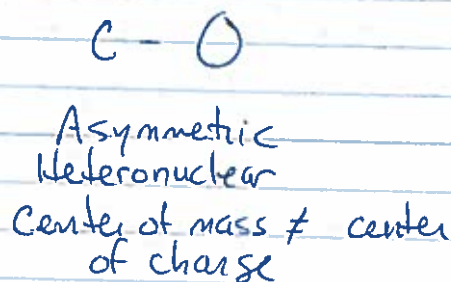 C - O
Asymmetric
Heteronuclear
Center of mass ≠ center
of charge